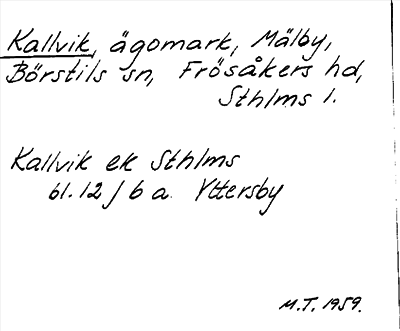 Kallvik, ägomark, Mälby,
Börstils sn, Frösåkers hd,
Sthlms l.
Kallvik ek Sthlms
bl. 12 J 6 a Yttersby
M.T. 1959.